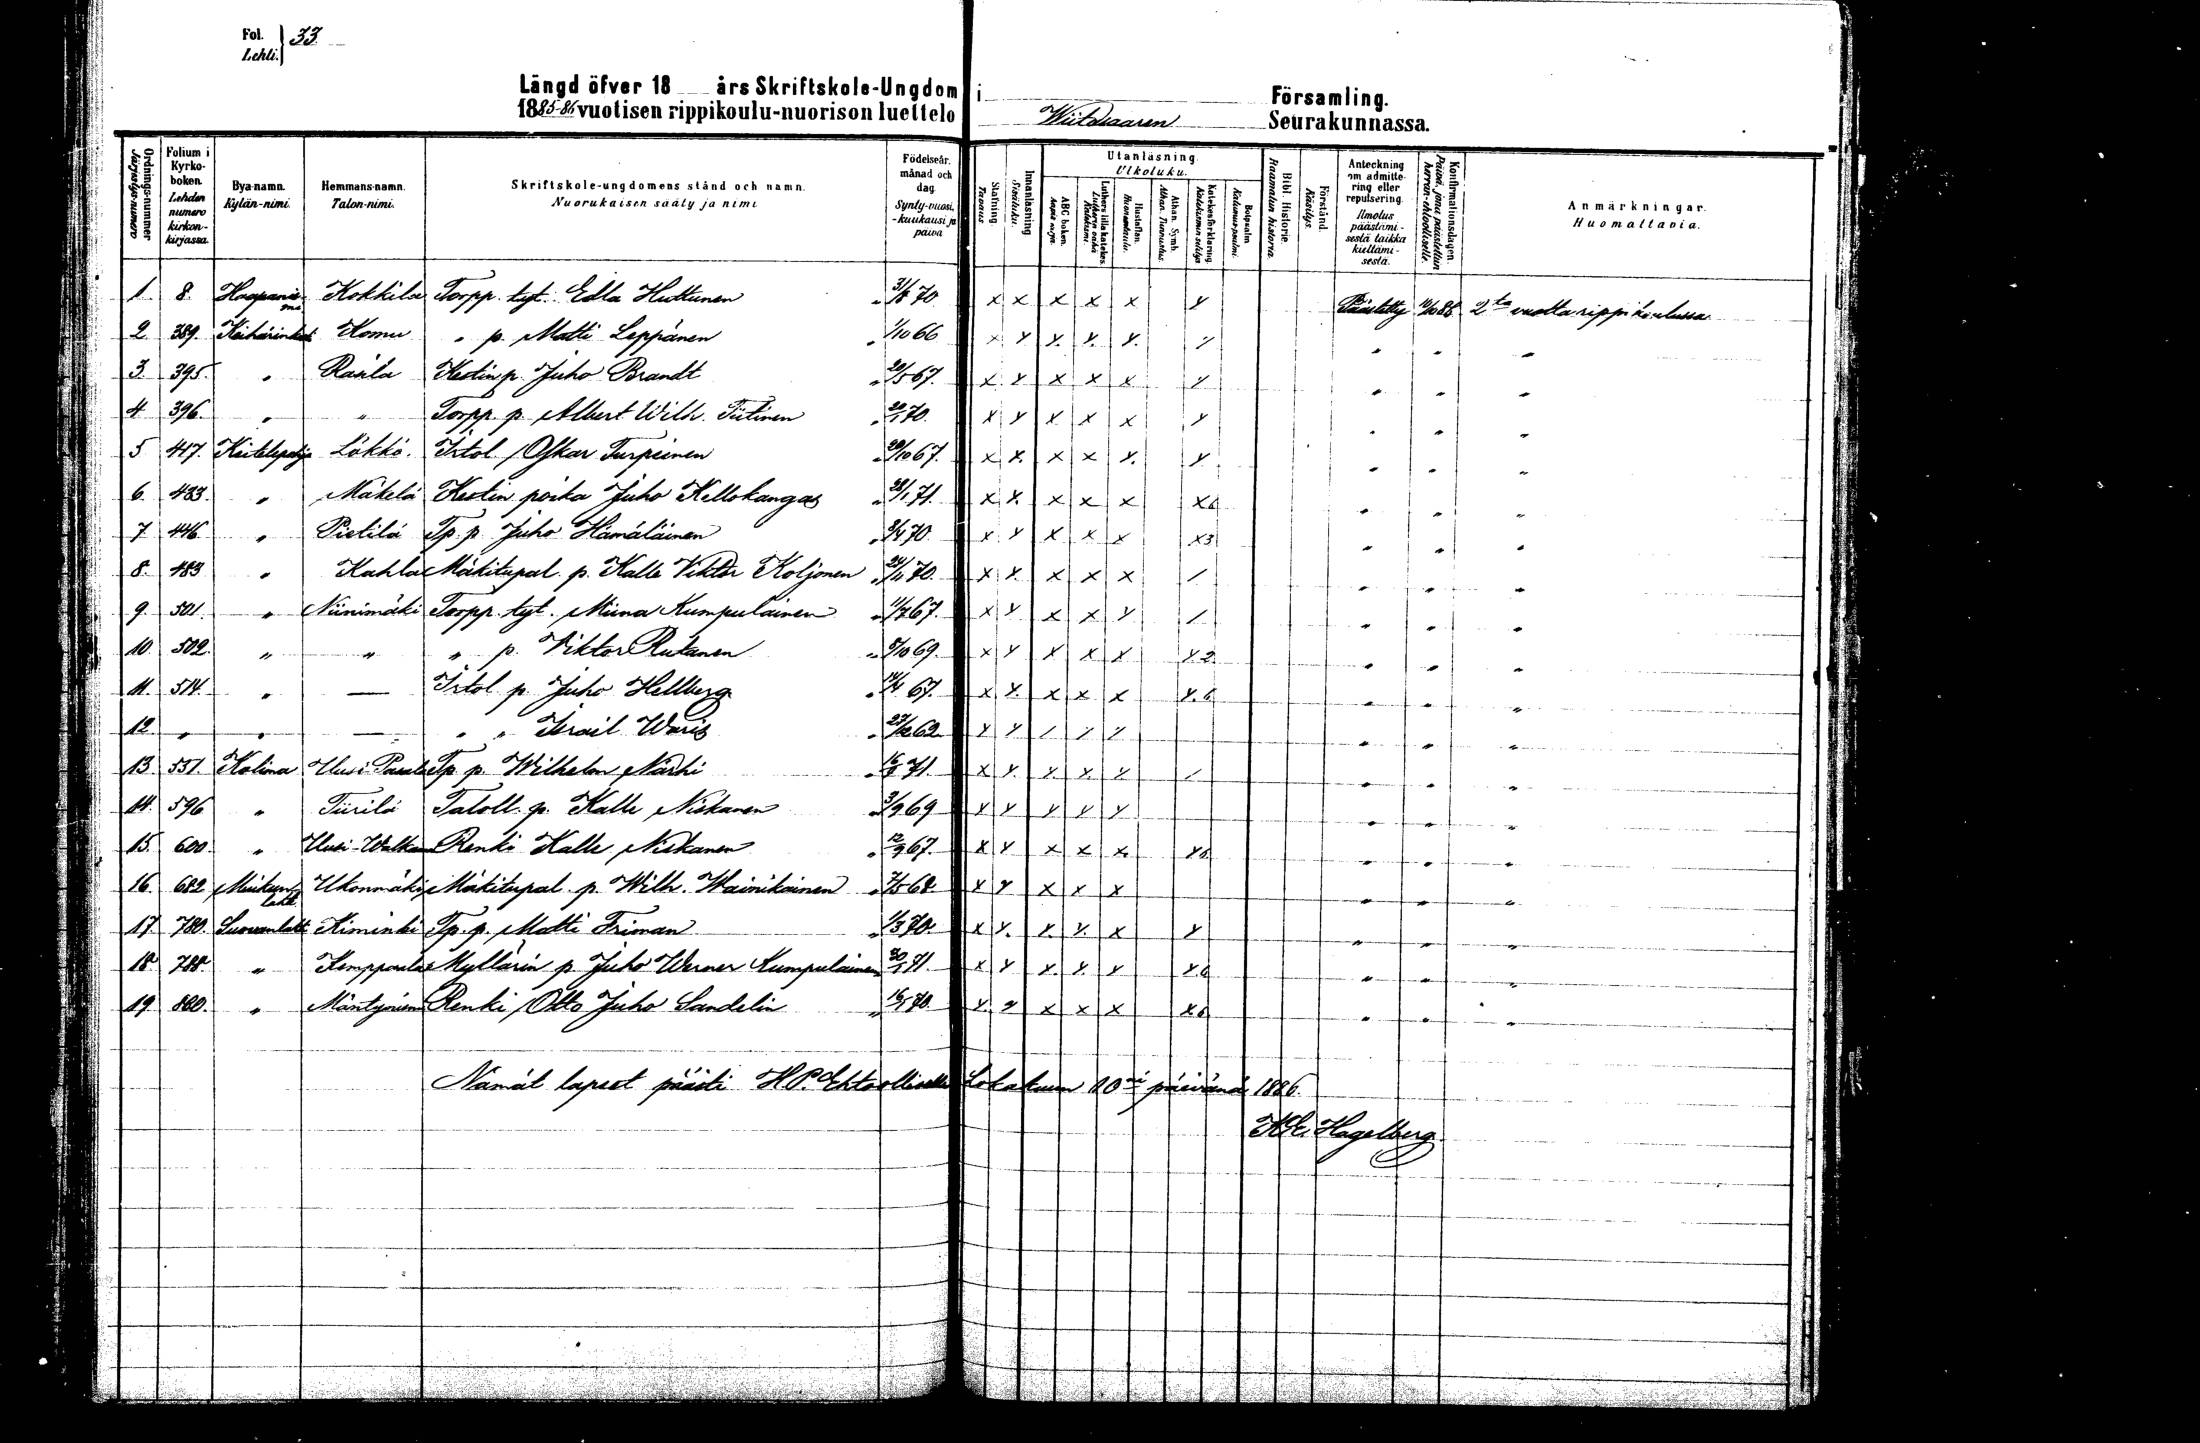 Fol. Lehti. } 33
Längd öfver 18 års Skriftskole-Ungdom i Församling.
1885-86 vuotisen rippikoulu-nuorison luettelo Wiitasaaren Seurakunnassa.
Ordnings-nummer Järjestys-numero
Folium i Kyrko-boken. Lehden numero kirkon-kirjassa.
Bya-namn. Kylän-nimi.
Hemmans-namn. Talon-nimi.
Skriftskole-ungdomens stånd och namn. Nuorukaisen sääty ja nimi
Födelseår, månad och dag. Synty-vuosi, -kuukausi ja päivä
Stafning. Tavaus
Innanläsning Sisäluku.
Utanläsning. Ulkoluku.
ABC boken.
Luthers lilla katekes.
Hustaflan. Huoneentaulu.
Athan. Symb. Athan. Tunnustus.
Katekesförklaring.
Botpsalm. Katumus-psalmi.
Bibl. Historie. Raamatun historia.
Förstånd. Käsitys.
Anteckning om admitte-ring eller repulsering. Ilmoitus päästämi-sestä taikka kieltämi-sestä.
Konfirmationsdagen.
Anmärkningar. Huomattavia.
1. 8. Haapanie-mi Kokkila Torpp. tyt. Edla Huttunen 31/8 70. x x x x x y Päästetty 10/10 86 2ta vuotta rippikoulussa
2 389. Keihärinkoski Komu " p. Matti Leppänen 1/10 66
3. 395. " Räihä Kestin p. Juho Brandt 20/5 67.
4 396. " " Torpp. p. Albert Wilh. Tiitinen 20/1 70.
5 417. Keitelepohja Lökkö. Itsl. Oskar Turpeinen 20/10 67.
6. 433. " Mäkelä Kestin poika Juho Kellokangas 28/1 71. x6
7 446 " Pietilä Tp. p. Juho Hämäläinen 2/4 70 x3
8. 483 " Kahla Mäkitupal. p. Kalle Viktor Koljonen 24/11 70.
9. 501. " Niinimäki Torpp. tyt. Miina Kumpulainen 11/7 67.
10. 502. " " " p. Viktor Rutanen 5/10 69. y.2
11. 514. " — Itsl. p. Juho Hellberg 14/4 67. y.6
12. " " — " " Israil Waris 27/12 62
13. 551. Kolima Uusi-Pasala Tp. p. Wilhelm Närhi 16/8 71.
14. 596 " Tiirilä Taloll. p. Kalle Niskanen 3/9 69
15. 600. " Renki Kalle Niskanen 12/9 67. y6
16. 682 Muikun-lahti Ukonmäki Mäkitupal. p. Wilh. Wainikainen 7/5 68
17. 780. Suovanlahti Kiminki Tp. p. Matti Friman 1/3 70.
18. 788. " Kemppaala Myllärin p. Juho Werner Kumpulainen 30/1 71. y.6
19. 880. " Mäntyniemi Renki Otto Juho Sandelin 16/1 70 x6
Nämät lapset pääsi H.P. Ehtoolliselle Lokakuun 10nä päivänä 1886.
K. E. Hagelberg